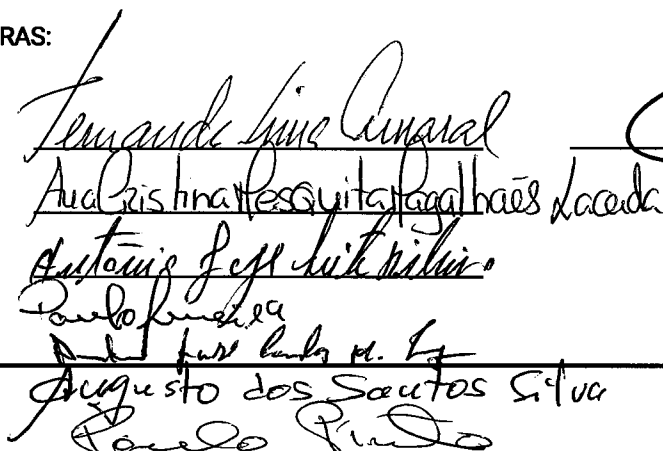 RAS:
Fernando Lima Amaral
Ana Cristina Mesquita Magalhães Lacerda
António José Leite
Paulo
José Carlos
Augusto dos Santos Silva
Paulo Pinto